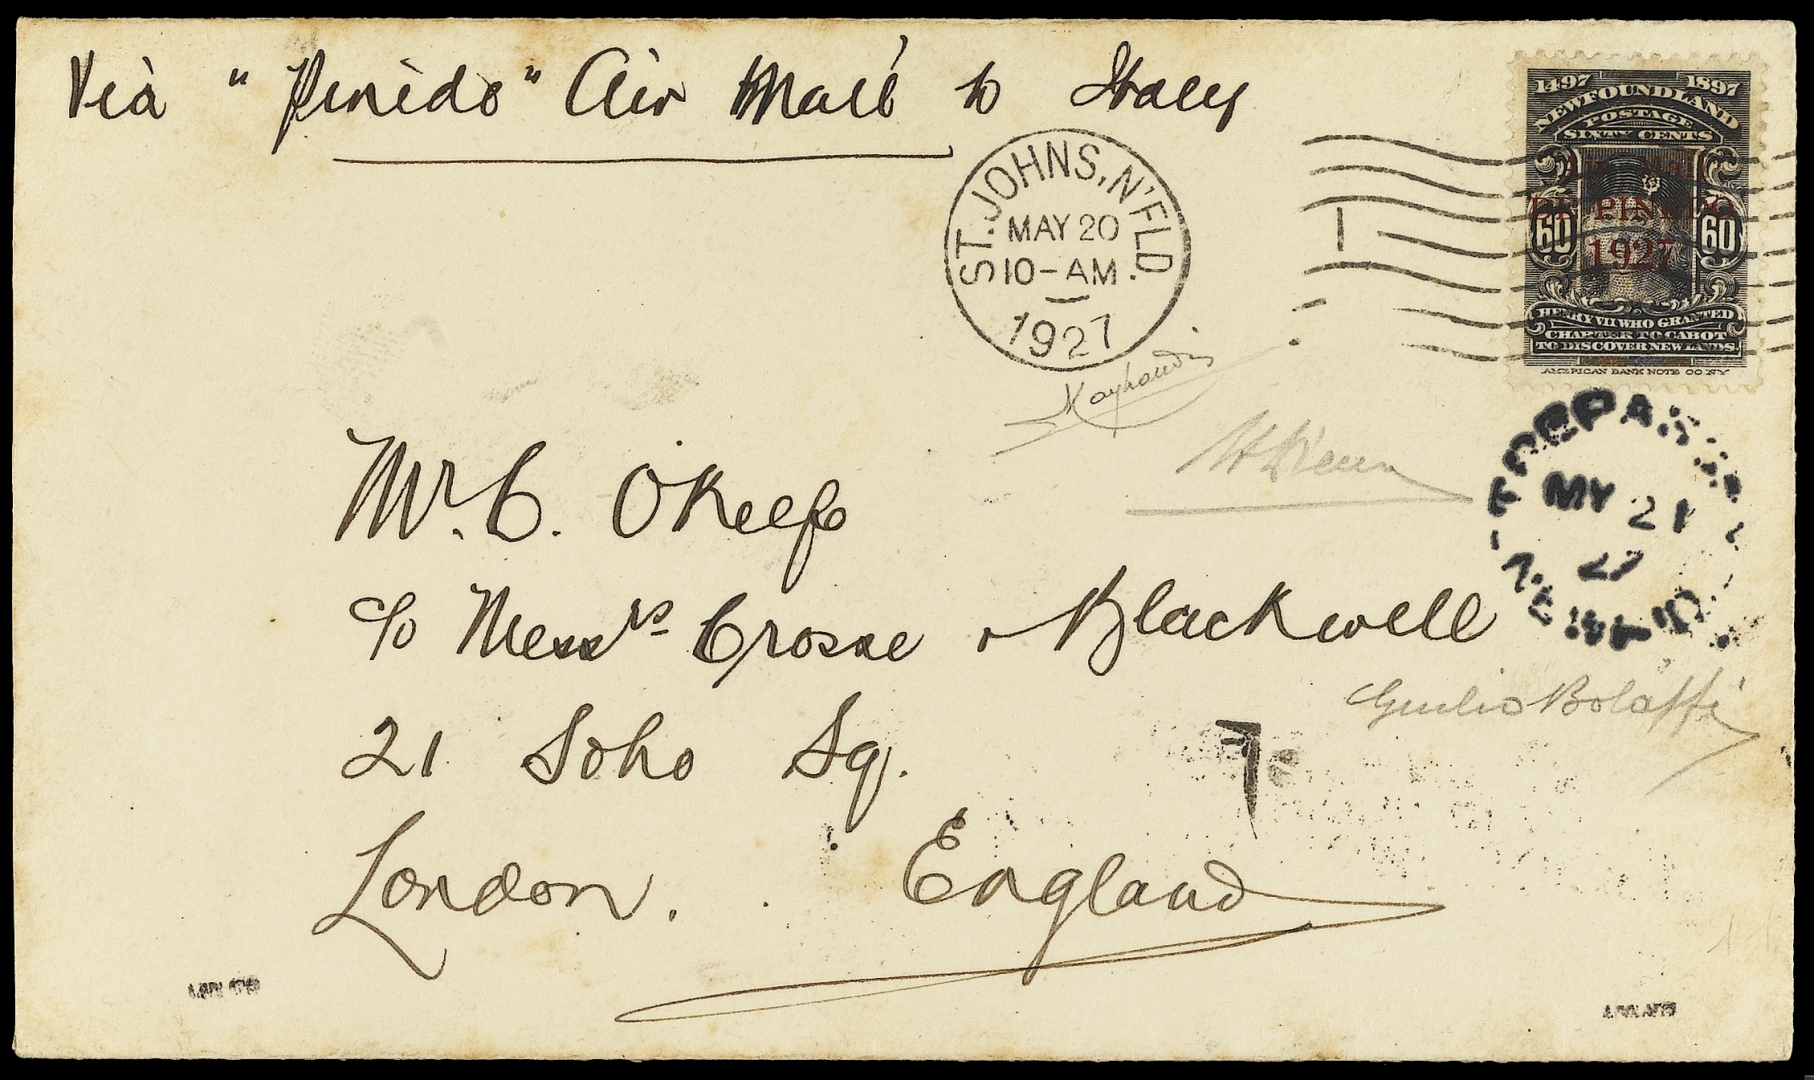 Via "Pinedo" Air Mail to Italy
1497 1897
NEWFOUNDLAND
POSTAGE
SIXTY CENTS
AIR MAIL
DE PINEDO
1927
60 60
HENRY VII WHO GRANTED
CHARTER TO CABOT
TO DISCOVER NEW LANDS.
AMERICAN BANK NOTE CO. N.Y.
ST. JOHNS, N'FLD.
MAY 20
10-AM
1927
MY 21
27
NEWF'D
Mr. C. O'Keefe
c/o Messrs Crosse & Blackwell
Giulio Bolaffi
21 Soho Sq.
London. England